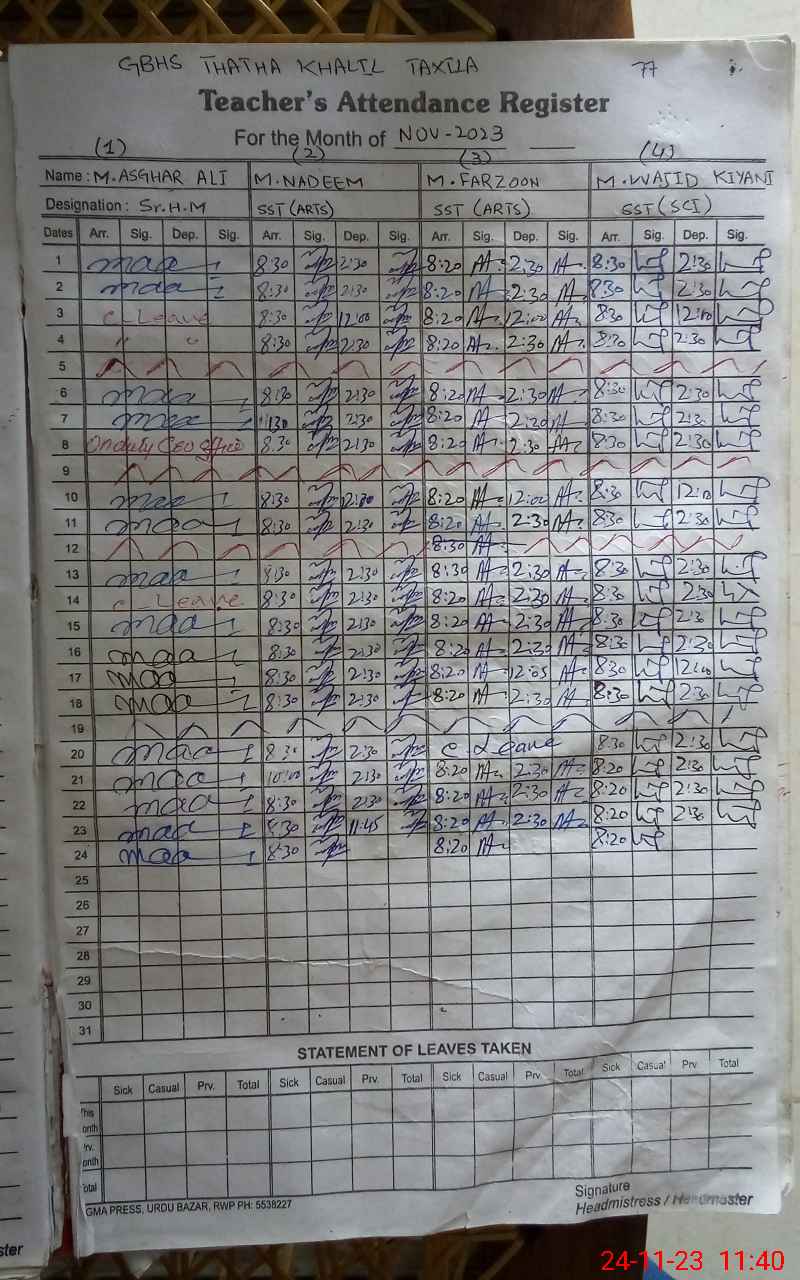 GBHS THATHA KHALIL TAXILA 77
Teacher's Attendance Register
For the Month of NOV-2023
(1) (2) (3) (4)
Name: M.ASGHAR ALI M.NADEEM M.FARZOON M.WAJID KIYANI
Designation: Sr.H.M SST (ARTS) SST (ARTS) SST (SCI)
Dates Arr. Sig. Dep. Sig. Arr. Sig. Dep. Sig. Arr. Sig. Dep. Sig. Arr. Sig. Dep. Sig.
1 maa 8:30 2:30 8:20 2:30 8:30 2:30
2 maa 8:30 2:30 8:20 2:30 8:30 2:30
3 C_Leave 8:30 12:00 8:20 12:00 8:30 12:00
4 " " 8:30 2:30 8:20 2:30 8:30 2:30
5
6 maa 8:30 2:30 8:20 2:30 8:30 2:30
7 maa 2:30 8:20 2:20 8:30 2:30
8 Onduty CEO office 8:30 2:30 8:20 2:30 8:30 2:30
9
10 maa 8:30 12:00 8:20 12:00 8:30 12:00
11 maa 8:30 2:30 8:20 2:30 8:30 2:30
12 8:30
13 maa 8:30 2:30 8:30 2:30 8:30 2:30
14 C_Leave 8:30 2:30 8:20 2:30 8:30 2:30
15 maa 8:30 2:30 8:20 2:30 8:30 2:30
16 maa 8:30 2:30 8:20 2:30 8:30 2:30
17 maa 8:30 2:30 8:20 12:05 8:30 12:00
18 maa 8:30 2:30 8:20 2:30 8:30 2:30
19
20 maa 8:30 2:30 C Leave 8:30 2:30
21 maa 10:00 2:30 8:20 2:30 8:20 2:30
22 maa 8:30 2:30 8:20 2:30 8:20 2:30
23 maa 8:30 11:45 8:20 2:30 8:20 2:30
24 maa 8:30 8:20 8:20
25
26
27
28
29
30
31
STATEMENT OF LEAVES TAKEN
Sick Casual Prv. Total Sick Casual Prv. Total Sick Casual Prv. Total Sick Casual Prv. Total
This
onth
rv.
onth
otal
GMA PRESS, URDU BAZAR, RWP PH: 5538227
Signature
Headmistress / Headmaster
ster
24-11-23 11:40